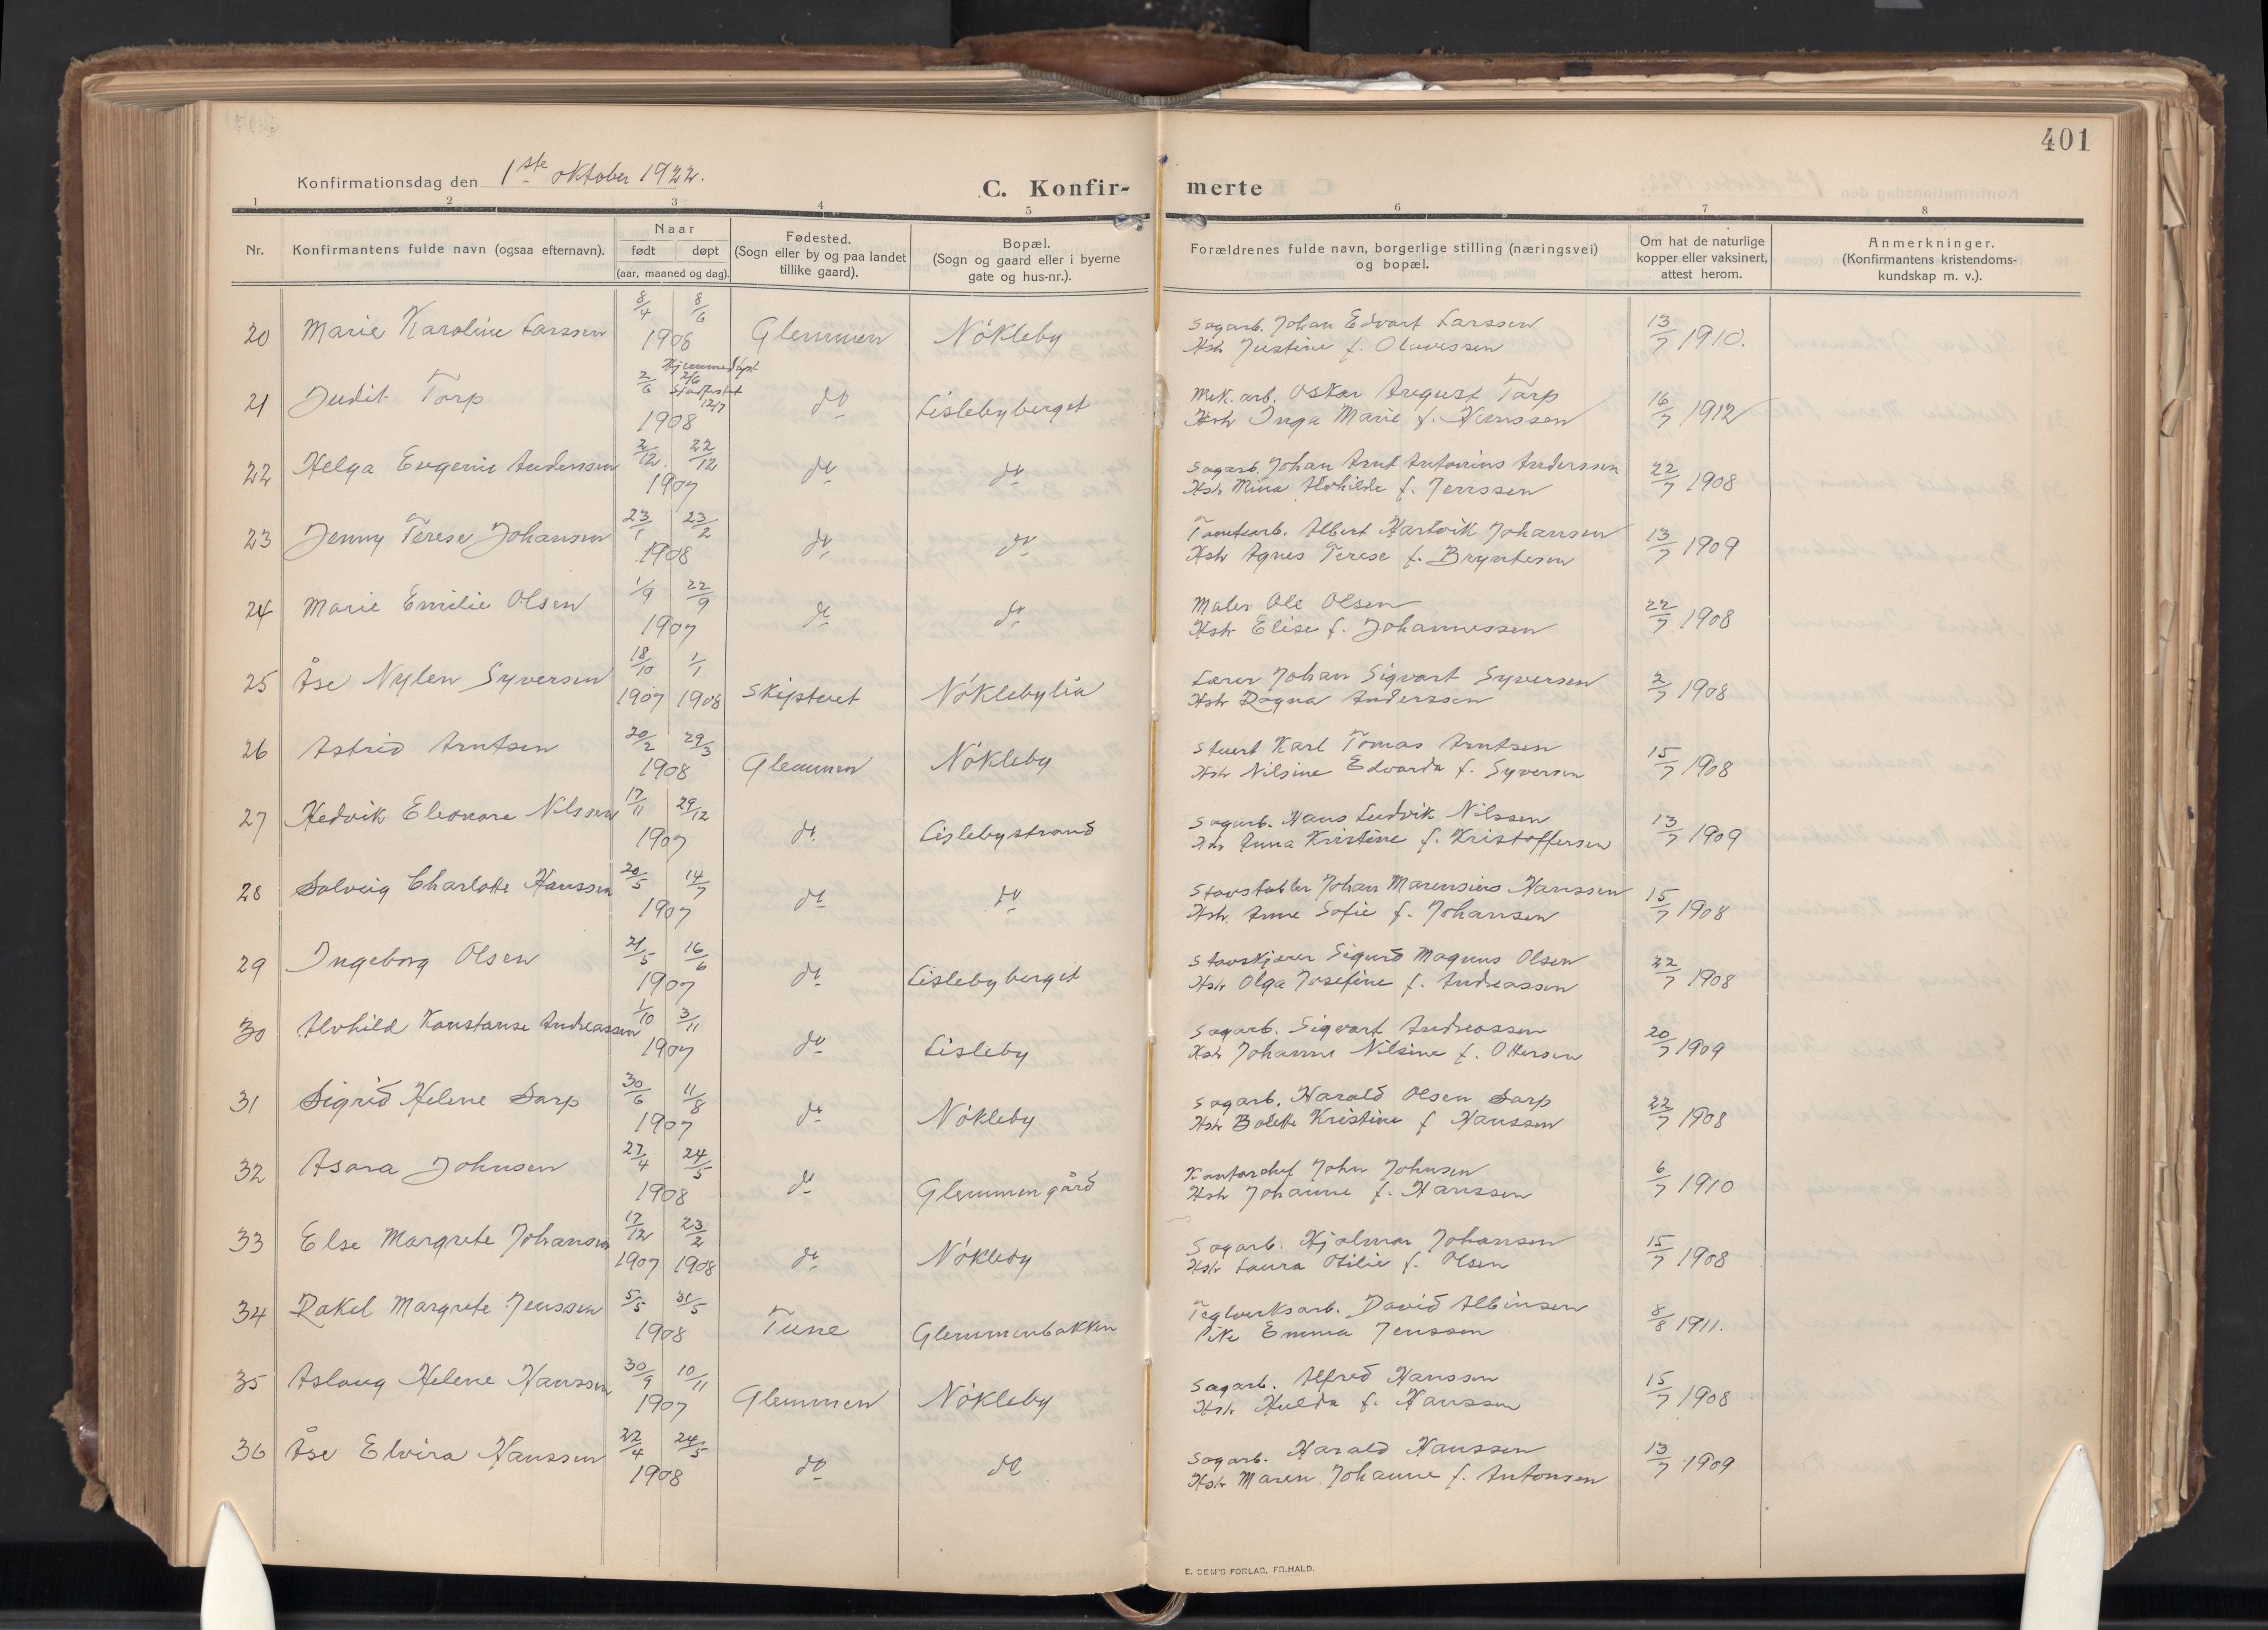 401
Konfirmationsdag den 1ste oktober 1922.
C. Konfir- merte
1 2 3 4 5 6 7 8
Nr. Konfirmantens fulde navn (ogsaa efternavn). Naar født døpt (aar, maaned og dag). Fødested. (Sogn eller by og paa landet tillike gaard). Bopæl. (Sogn og gaard eller i byerne gate og hus-nr.). Forældrenes fulde navn, borgerlige stilling (næringsvei) og bopæl. Om hat de naturlige kopper eller vaksinert, attest herom. Anmerkninger. (Konfirmantens kristendoms-kundskap m. v.).
20 Marie Karoline Larssen 8/4 8/6 1908 Glemmen Nökleby Sagarb. Johan Edvart Larssen 13/7 1910.
Hstr Justine f. Olavessen
21 Judit Torp 2/6 Hjemmedöpt 2/6 Stadfestet 12/7 1908 do Lislebyberget Mek. arb. Oskar August Torp 16/7 1912
Hstr Inga Marie f. Hanssen
22 Helga Eugenie Anderssen 2/12 22/12 1907 do do Sagarb. Johan Arnt Antonius Anderssen 22/7 1908
Hstr Mina Alvhilde f. Jenssen
23 Jenny Terese Johansen 23/1 23/2 1908 do do Tomtearb. Albert Hartvik Johansen 13/7 1909
Hstr Agnes Terese f. Bryntesen
24 Marie Emilie Olsen 1/9 22/9 1907 do do Maler Ole Olsen 22/7 1908
Hstr Elise f. Johannessen
25 Åse Nylen Syversen 18/10 1/1 1907 1908 Skiptvet Nöklebylia Lærer Johan Sigvart Syversen 2/7 1908
Hstr Ragna Anderssen
26 Astrid Arntsen 20/2 29/3 1908 Glemmen Nökleby Stuert Karl Tomas Arntsen 15/7 1908
Hstr Nilsine Edvarda f. Syversen
27 Hedvik Eleonore Nilssen 17/11 29/12 1907 do Lislebystrand Sagarb. Hans Ludvik Nilssen 13/7 1909
Hstr Anna Kristine f. Kristoffersen
28 Solveig Charlotte Hanssen 20/5 14/7 1907 do do Stavstabler Johan Marensius Hanssen 15/7 1908
Hstr. Anne Sofie f. Johansen
29 Ingeborg Olsen 21/5 16/6 1907 do Lislebyberget Stavskjærer Sigurd Magnus Olsen 22/7 1908
Hstr Olga Josefine f. Andreassen
30 Alvhild Konstanse Andreassen 1/10 3/11 1907 do Lisleby Sagarb. Sigvart Andreassen 20/7 1909
Hstr Johanne Nilsine f. Ottersen
31 Sigrid Helene Sarp 30/6 11/8 1907 do Nökleby Sagarb. Harald Olsen Sarp 22/7 1908
Hstr Bolette Kristine f Hanssen
32 Asora Johnsen 27/4 24/5 1908 do Glemmengård Kontorchef John Johnsen 6/7 1910
Hstr Johanne f. Hanssen
33 Else Margrete Johansen 17/12 23/2 1907 1908 do Nökleby Sagarb. Hjalmar Johansen 15/7 1908
Hstr Laura Otilie f. Olsen
34 Rakel Margrete Jenssen 5/5 31/5 1908 Tune Glemmenbakken Teglverksarb. David Albinsen 8/8 1911.
Pike Emma Jenssen
35 Aslaug Helene Hanssen 30/9 10/11 1907 Glemmen Nökleby Sagarb. Alfred Hanssen 15/7 1908
Hstr. Hulda f. Hanssen
36 Åse Elvira Hanssen 22/4 24/5 1908 do do Sagarb. Harald Hanssen 13/7 1909
Hstr Maren Johanne f. Antonsen
E. SEM'S FORLAG, FR.HALD.